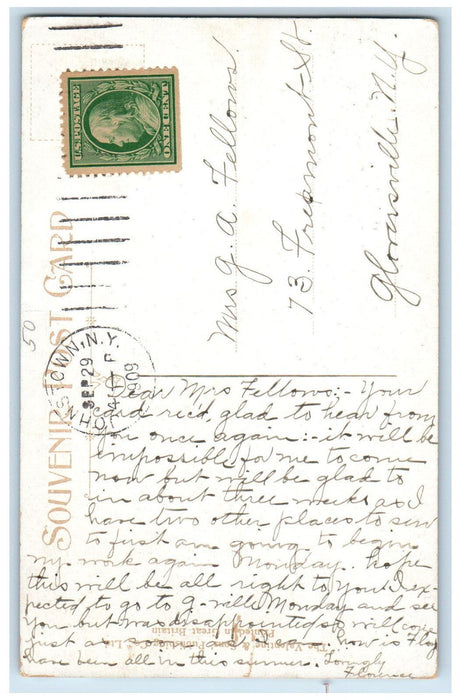 SOUVENIR POST CARD
50
U.S. POSTAGE
ONE CENT
JOHNSTOWN, N.Y.
SEP 29
1909
Mrs. G. A. Fellows.
73 Freemont St.
Gloversville N.Y.
Dear Mrs Fellows:- Your
card rec'd, glad to hear from
you once again:- it will be
impossible for me to come
now but will be glad to
in about three weeks as I
have two other places to sew
to first am going to begin
my work again Monday. hope
this will be all right to you I ex-
pected to go to G-ville Monday and see
you but was disappointed so will come
just as soon as I can. how is Floy
I have been all in this summer. Lovingly
Florence
The Valentine & Sons Publishing Co., Ltd.
Printed in Great Britain